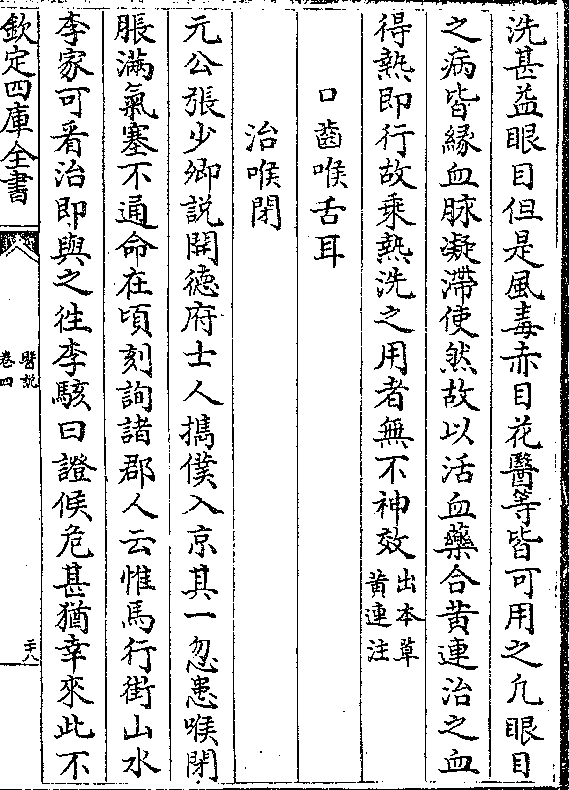 洗甚益眼目但是風毒赤目花醫等皆可用之凡眼目
之病皆縁血脉凝滯使然故以活血藥合黄連治之血
得熱即行故乗熱洗之用者無不神效出本草黄連注
口齒喉舌耳
治喉閉
元公張少卿説開徳府士人攜僕入京其一忽患喉閉
脹滿氣塞不通命在頃刻詢諸郡人云惟馬行街山水
李家可看治即與之徃李駭曰證候危甚猶幸來此不
欽定四庫全書
醫説
卷四
二十八